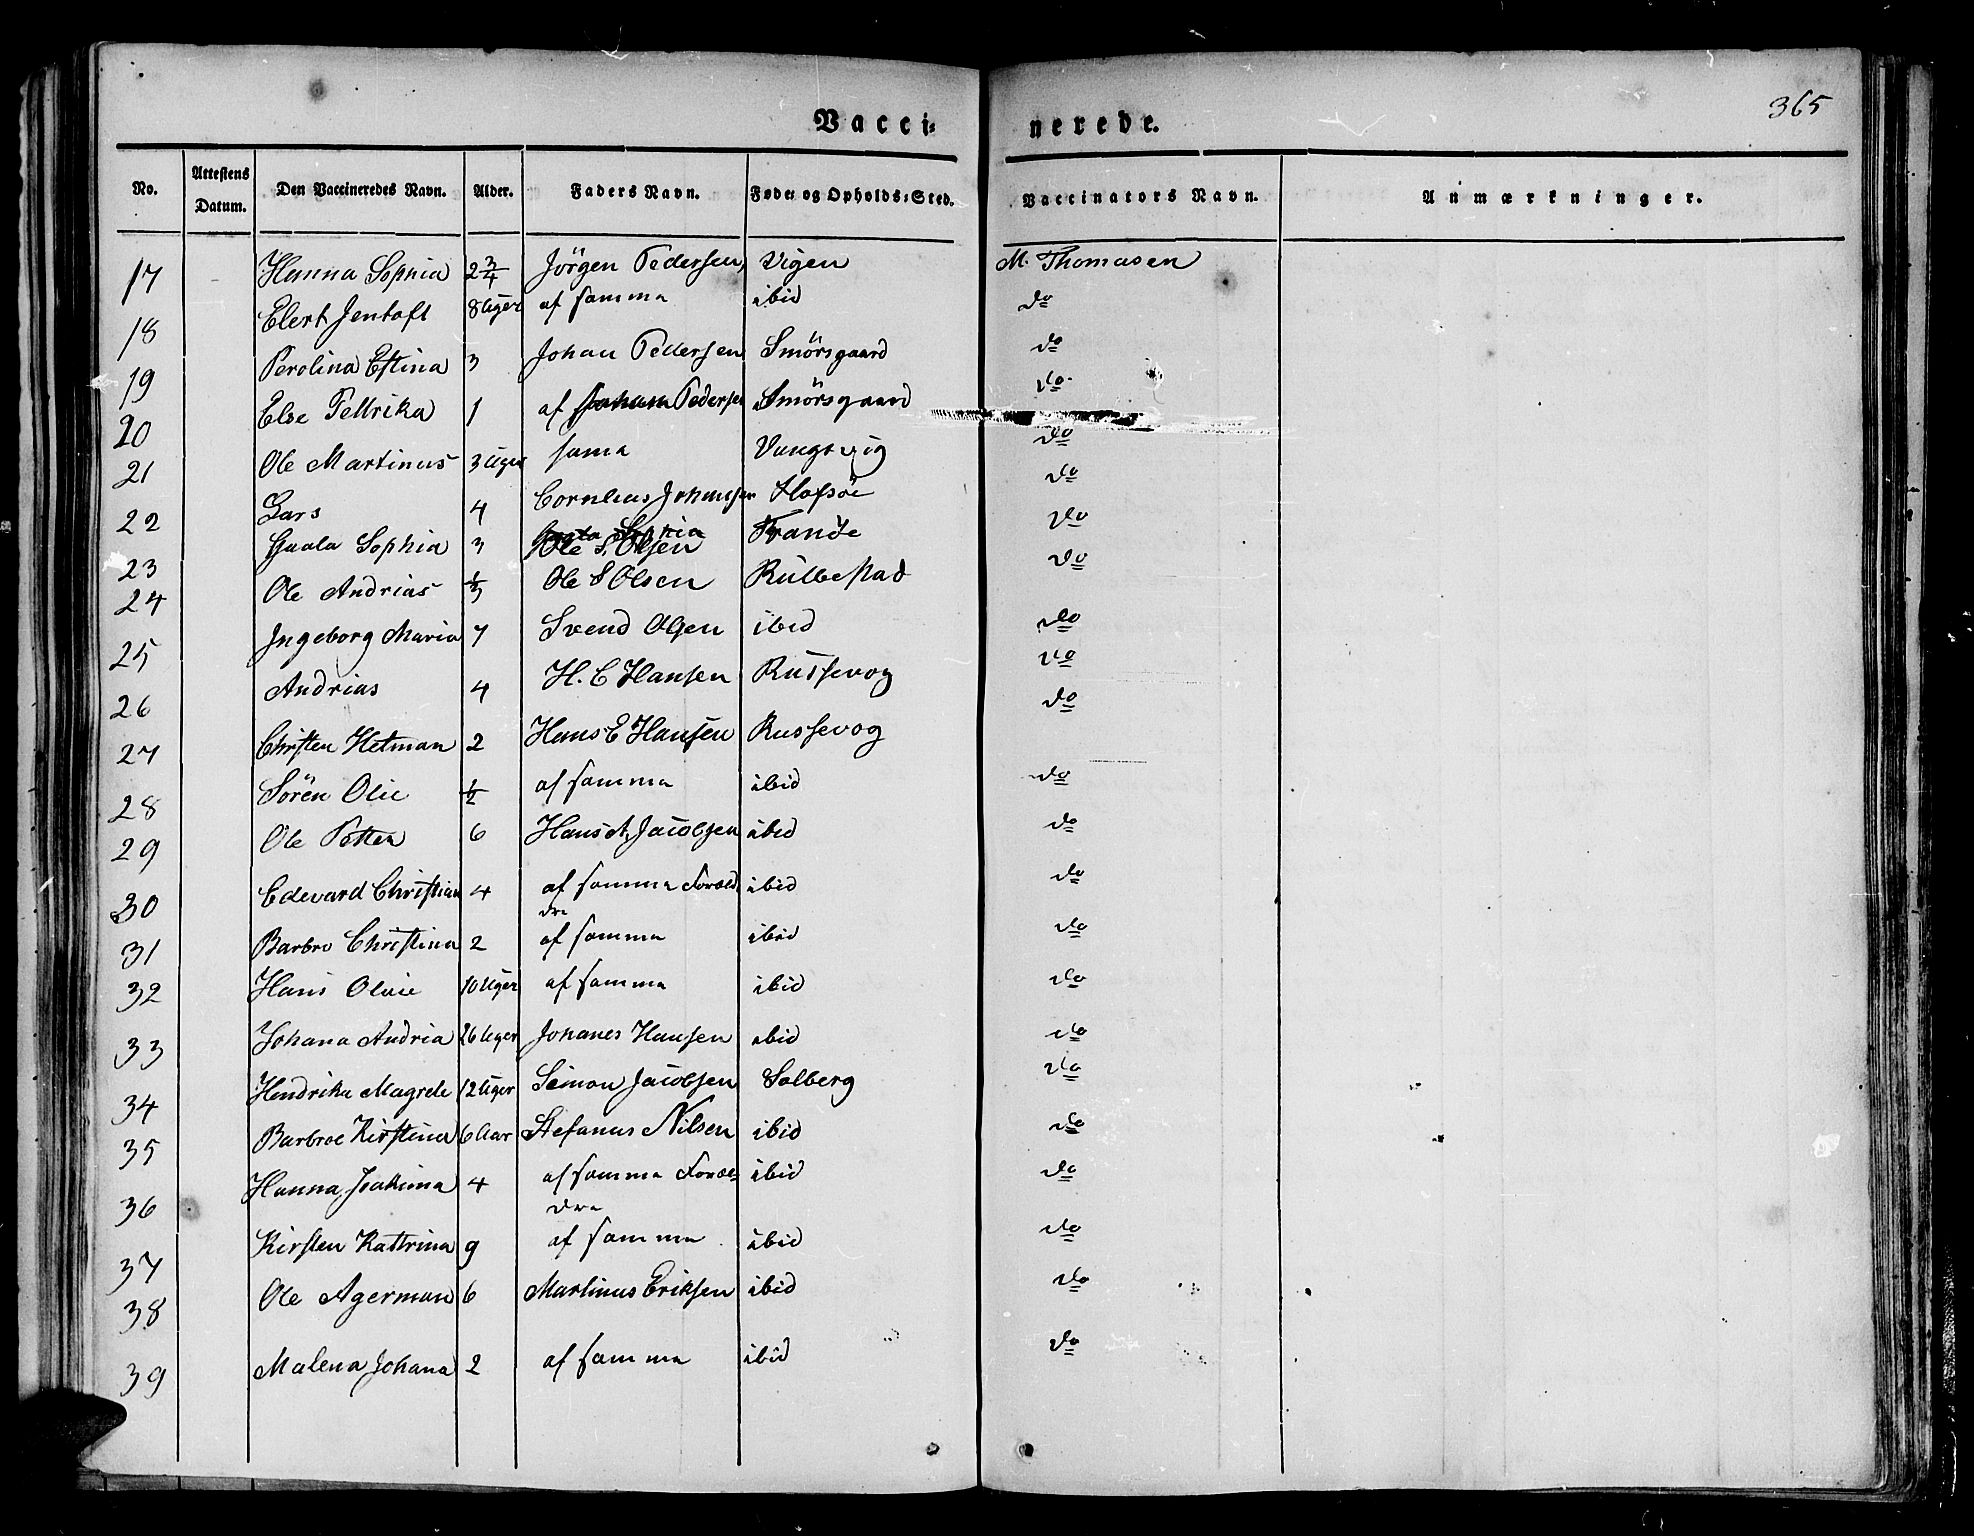 365
Vacci= nerede.
No. Attestens Datum. Den Vaccineredes Navn. Alder. Faders Navn. Føde= og Opholds=Sted. Vaccinators Navn. Anmærkninger.
17 Hanna Sophia 2 3/4 Jörgen Pedersen Vigen M. Thomasen
18 Elert Jentoft 8 Uger af samma ibid do
19 Perolina Estina 3 Johan Pedersen Smörsgaard do
20 Else Pettrika 1 af Johan Pedersen Smörsgaard do
21 Ole Martinus 3 Uger sama Vangsvig do
22 Lars 4 Cornlius Johansen Hofsöe do
23 Gaala Sophia 3 Ole S. Olsen Trande do
24 Ole Andrias 1/3 Ole S Olsen Rulbestad do
25 Ingeborg Maria 7 Svend Olsen ibid do
26 Andrias 4 H. C Hansen Russevog do
27 Christen Hetman 2 Hans E Hansen Russevog do
28 Sören Olie 1/2 af samma ibid do
29 Ole Petter 6 Hans A. Jacobsen ibid do
30 Edevard Christian 4 af samma Foræl ibid do
dre
31 Barbro Christina 2 af samma ibid do
32 Hans Oluie 10 Uger af samma ibid do
33 Johana Andria 26 Uger Johanes Hansen ibid do
34 Hendrika Magrele 12 Uger Simon Jacobsen Solberg do
35 Barbroe Kirstina 6 Aar Stefanus Nilsen ibid do
36 Hanna Joakima 4 af samma Foræl= ibid do
dre
37 Kirsten Kattrina 9 af samma ibid do
38 Ole Agerman 6 Martinus Eriksen ibid do
39 Malena Johana 2 af samma ibid do